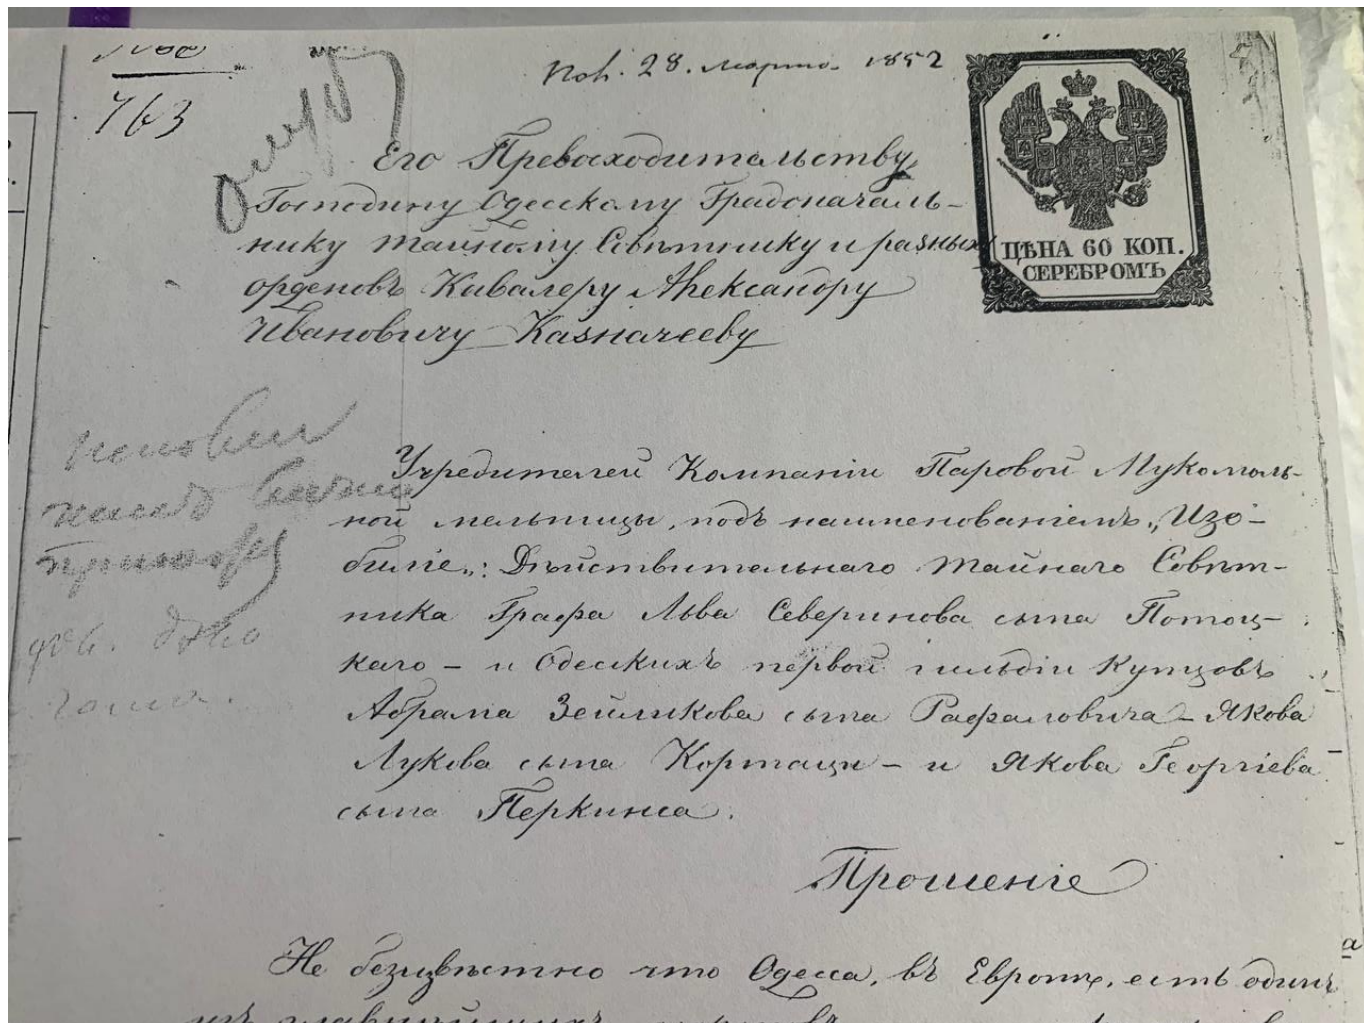 763
28. марта 1852
Его Превосходительству
Господину Одесскому Градоначаль-
нику тайному Совѣтнику и разныхъ
орденовъ Кавалеру Александру
Ивановичу Казначееву
ЦѢНА 60 КОП.
СЕРЕБРОМЪ
Учредителей Компаніи Паровой Мукомоль-
ной мельницы, подъ наименованіемъ „Изо-
биліе„: Дѣйствительнаго тайнаго Совѣт-
ника Графа Льва Северинова сына Потоц-
каго - и Одесскихъ первой гильдіи Купцовъ
Абрама Зейликова сына Рафаловича - Якова
Лукова сына Кортаци - и Якова Георгіева
сына Перкинса.
Прошеніе
Не безизвѣстно что Одесса, въ Европѣ, есть одинъ
изъ главнѣйшихъ